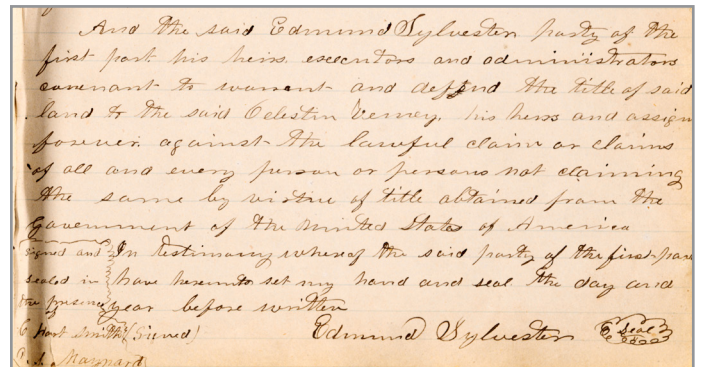 And the said Edmund Sylvester party of the
first part his heirs executors and administrators
covenant to warrent and defend the title of said
land to the said Celestin Verney, his heirs and assign
forever against the lawful claim or claims
of all and every person or persons not claiming
the same by virtue of title obtained from the
Government of the United States of America
signed and In testimony whereof the said party of the first part
sealed in have hereunto set my hand and seal the day and
the presence year before written
C Hart Smith (Signed) Edmund Sylvester Seal
D. S. Maynard